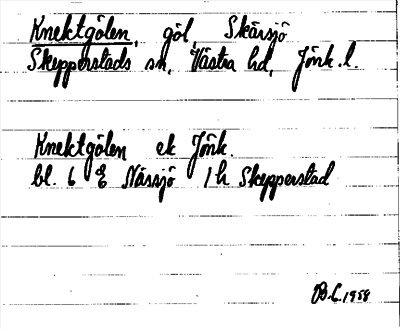 Knektgölen, göl, Skärsjö
Skepperstads sn, Västra hd, Jönk. l.
Knektgölen ek Jönk.
bl. 6 E Nässjö 1 h Skepperstad
B.L. 1958